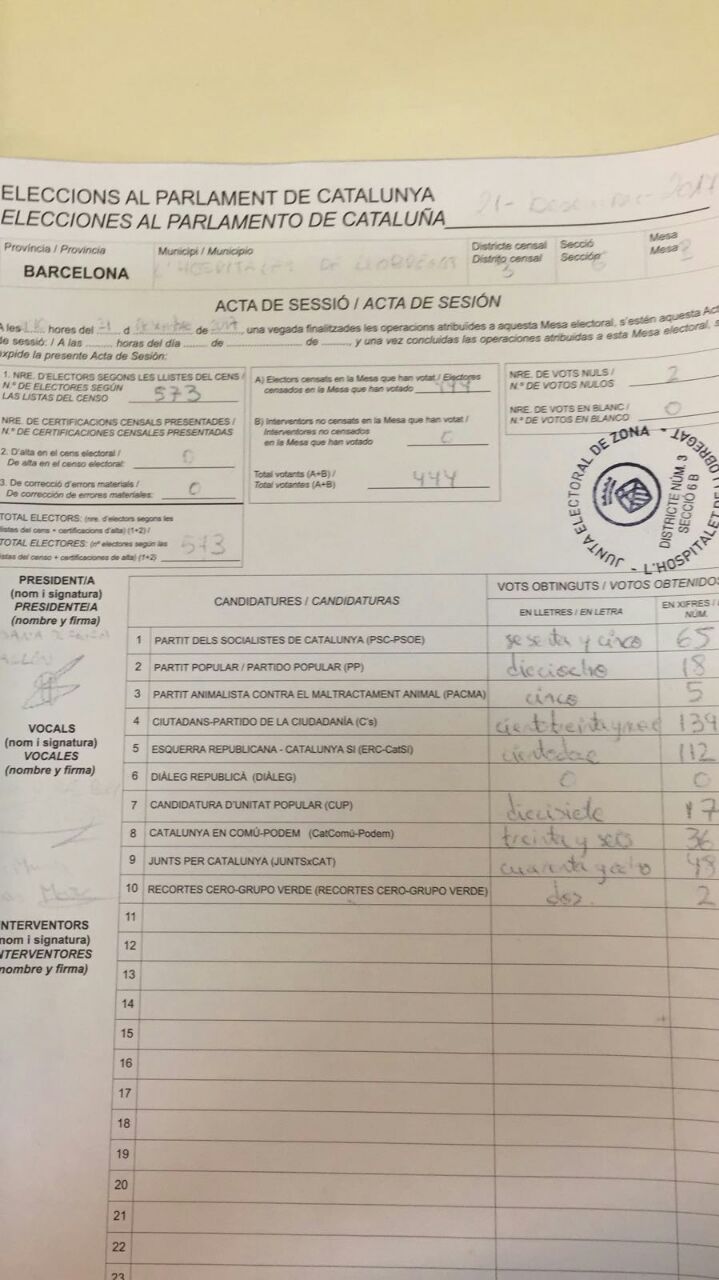 ELECCIONS AL PARLAMENT DE CATALUNYA
ELECCIONES AL PARLAMENTO DE CATALUÑA 21- 2017
Província / Provincia
BARCELONA
Municipi / Municipio
L'HOSPITALET DE LLOBREGAT
Districte censal
Distrito censal
3
Secció
Sección
6
Mesa
Mesa
ACTA DE SESSIÓ / ACTA DE SESIÓN
A les hores del 21 d de 2017, una vegada finalitzades les operacions atribuïdes a aquesta Mesa electoral, s'estén aquesta Act
de sessió: / A las ......... horas del día ...... de ..................... de ......., y una vez concluidas las operaciones atribuidas a esta Mesa electoral, s
expide la presente Acta de Sesión:
1. NRE. D'ELECTORS SEGONS LES LLISTES DEL CENS /
N.º DE ELECTORES SEGÚN
LAS LISTAS DEL CENSO 573
NRE. DE CERTIFICACIONS CENSALS PRESENTADES /
N.º DE CERTIFICACIONES CENSALES PRESENTADAS
2. D'alta en el cens electoral /
De alta en el censo electoral: 0
3. De correcció d'errors materials /
De corrección de errores materiales: 0
TOTAL ELECTORS: (nre. d'electors segons les
listas del cens + certificacions d'alta) (1+2) /
TOTAL ELECTORES: (nº electores según las
istas del censo + certificaciones de alta) (1+2) 573
A) Electors censats en la Mesa que han votat / Electores
censados en la Mesa que han votado 444
B) Interventors no censats en la Mesa que han votat /
Interventores no censados
en la Mesa que han votado 0
Total votants (A+B) /
Total votantes (A+B) 444
NRE. DE VOTS NULS /
N.º DE VOTOS NULOS 2
NRE. DE VOTS EN BLANC /
N.º DE VOTOS EN BLANCO 0
JUNTA ELECTORAL DE ZONA - L'HOSPITALET DE LLOBREGAT -
DISTRICTE NÚM. 3
SECCIÓ 6 B
PRESIDENT/A
(nom i signatura)
PRESIDENTE/A
(nombre y firma)
VOCALS
(nom i signatura)
VOCALES
(nombre y firma)
NTERVENTORS
nom i signatura)
NTERVENTORES
nombre y firma)
CANDIDATURES / CANDIDATURAS
VOTS OBTINGUTS / VOTOS OBTENIDOS
EN LLETRES / EN LETRA
EN XIFRES /
NÚM.
1 PARTIT DELS SOCIALISTES DE CATALUNYA (PSC-PSOE) sesenta y cinco 65
2 PARTIT POPULAR / PARTIDO POPULAR (PP) dieciocho 18
3 PARTIT ANIMALISTA CONTRA EL MALTRACTAMENT ANIMAL (PACMA) cinco 5
4 CIUTADANS-PARTIDO DE LA CIUDADANÍA (C's) 139
5 ESQUERRA REPUBLICANA - CATALUNYA SÍ (ERC-CatSí) 112
6 DIÀLEG REPUBLICÀ (DIÀLEG) 0 0
7 CANDIDATURA D'UNITAT POPULAR (CUP) diecisiete 17
8 CATALUNYA EN COMÚ-PODEM (CatComú-Podem) treinta y seis 36
9 JUNTS PER CATALUNYA (JUNTSxCAT) cuarenta y ocho 48
10 RECORTES CERO-GRUPO VERDE (RECORTES CERO-GRUPO VERDE) dos. 2
11
12
13
14
15
16
17
18
19
20
21
22
23